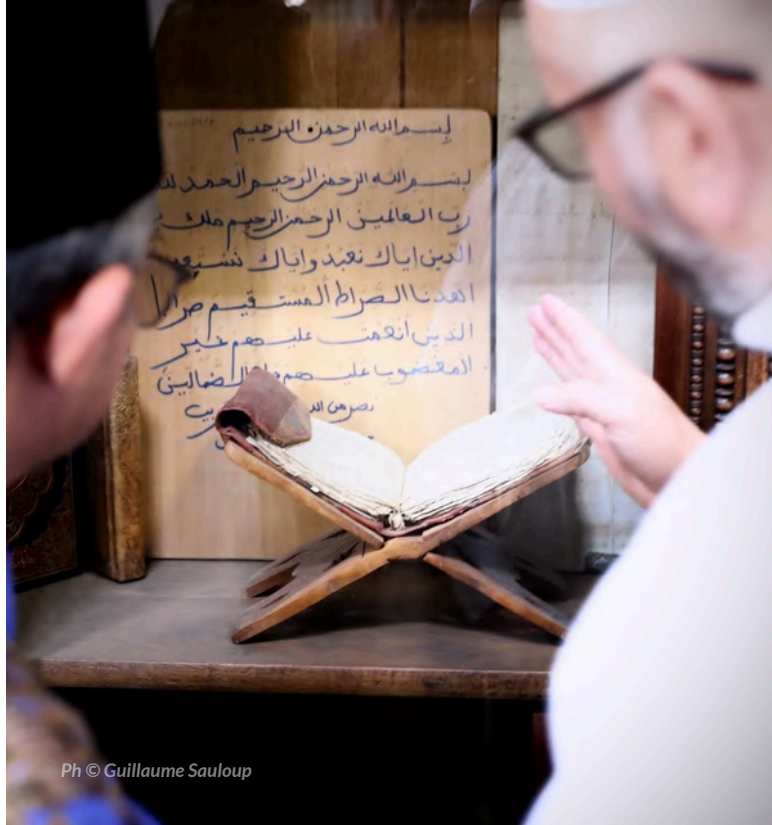 بسم الله الرحمن الرحيم
بسم الله الرحمن الرحيم الحمد لله
رب العالمين الرحمن الرحيم ملك
الدين اياك نعبد واياك نستعين
اهدنا الصراط المستقيم صراط
الذين انعمت عليهم غير
المغضوب عليهم ولا الضالين
نصر من الله
Ph © Guillaume Sauloup